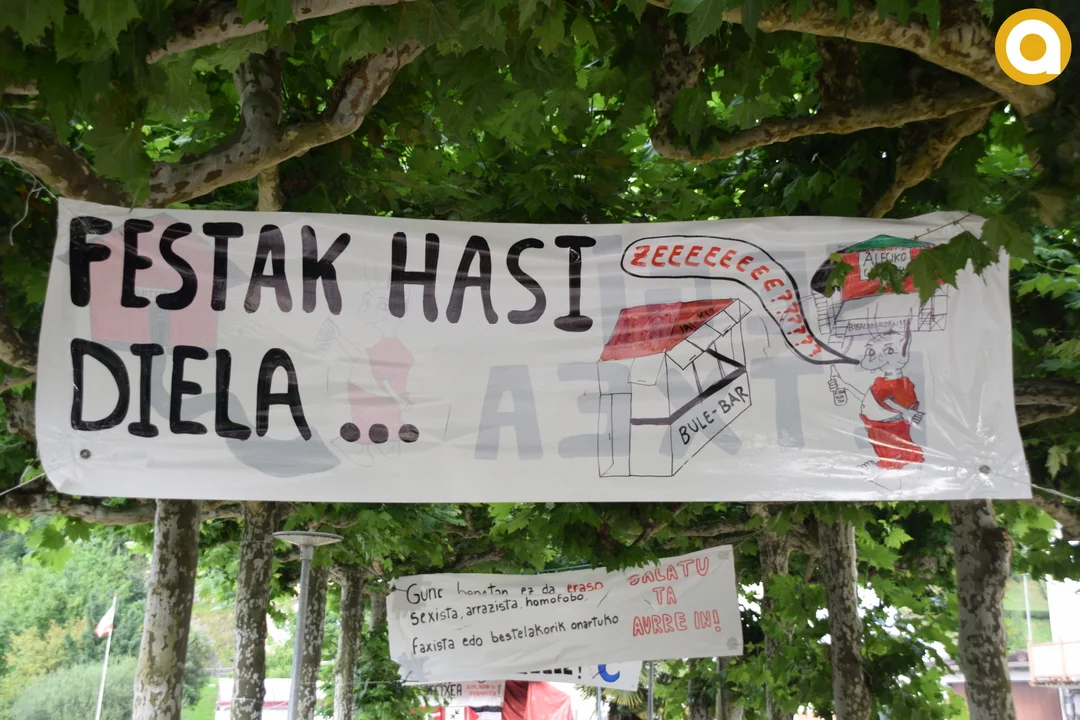 FESTAK HASI
DIELA ...
ZEEEEEEEE???????
BULE-BAR
Gune honetan ez da eraso
sexista, arrazista, homofobo,
faxista edo bestelakorik onartuko
SALATU
TA
AURRE IN!
a